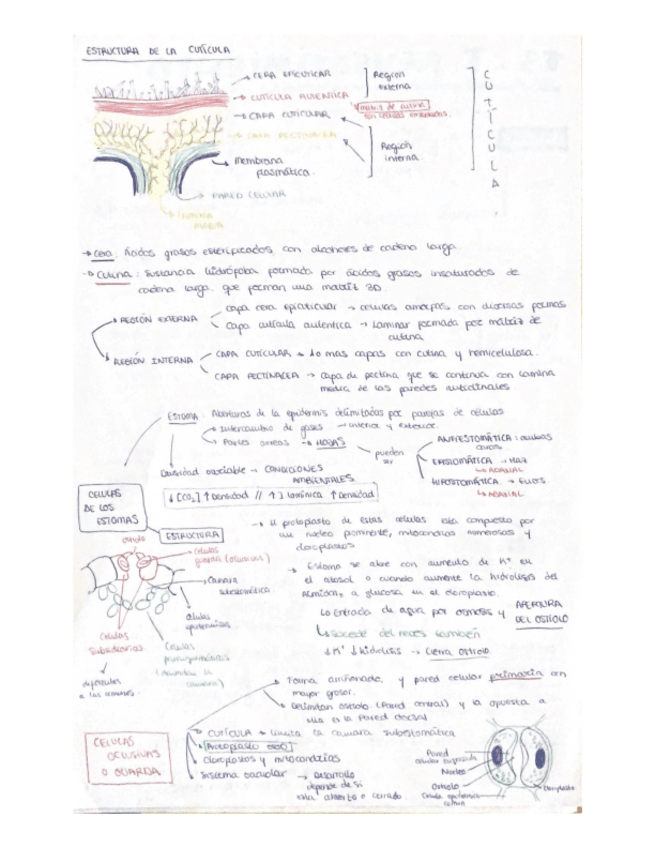 ESTRUCTURA DE LA CUTÍCULA
CERA EPICUTICULAR
CUTÍCULA AUTENTICA
CAPA CUTICULAR
CAPA PECTINACEA
Membrana plasmática.
PARED CELULAR
LAMINA MEDIA
Region externa
matriz de cutina
Región interna.
CUTÍCULA
→ Cera: Ácidos grasos esterificados con alcoholes de cadena larga
→ Cutina: Sustancia hidrófoba formada por ácidos grasos insaturados de
cadena larga. que forman una matriz 3D.
REGIÓN EXTERNA
capa cera epicuticular → celulas amorfas con diversas formas
Capa cutícula autentica → Laminar formada por matriz de
cutina
REGIÓN INTERNA
CAPA CUTICULAR → 1 o mas capas con cutina y hemicelulosa.
CAPA PECTINACEA → capa de pectina que se continua con lamina
media de las paredes anticlinales.
ESTOMA: Aberturas de la epidermis delimitadas por parejas de células
Intercambio de gases → interior y exterior.
Partes aereas → HOJAS
pueden ser
ANFIESTOMÁTICA: ambas caras
EPISTOMÁTICA → Haz
↳ ADAXIAL
HIPOSTOMÁTICA → Envés
↳ ABAXIAL
Densidad variable → CONDICIONES AMBIENTALES
↓[CO2] ↑Densidad // ↑I lumínica ↑Densidad
CELULAS DE LOS ESTOMAS
ESTRUCTURA
ostiolo
Celulas guarda (oclusivas)
Camara subestomática
células epidermicas
Celulas subsidiarias
diferentes a las comunes.
→ El protoplasto de estas celulas esta compuesto por
un nucleo prominente, mitocondrias numerosas y
cloroplastos
→ Estoma se abre con aumento de K+ en
el citosol o cuando aumente la hidrolisis del
Almidón, a glucosa en el cloroplasto.
↳ Entrada de agua por osmosis y APERTURA DEL OSTIOLO
↳ Sucede del reves tambien
↓K+ ↓hidrolisis → Cierra ostiolo
CELULAS OCLUSIVAS O GUARDA
Forma arriñonada, y pared celular primaria con
mayor grosor.
Delimitan ostiolo (Pared ventral) y la opuesta a
ella es la pared dorsal
CUTÍCULA → limita la camara subestomática
Protoplasto
Cloroplastos y mitocondrias
Sistema vacuolar → Desarrollo
depende de si
está abierto o cerrado.
Pared celular engrosada
Nucleo
Ostiolo
Celula epidermica
Cloroplasto